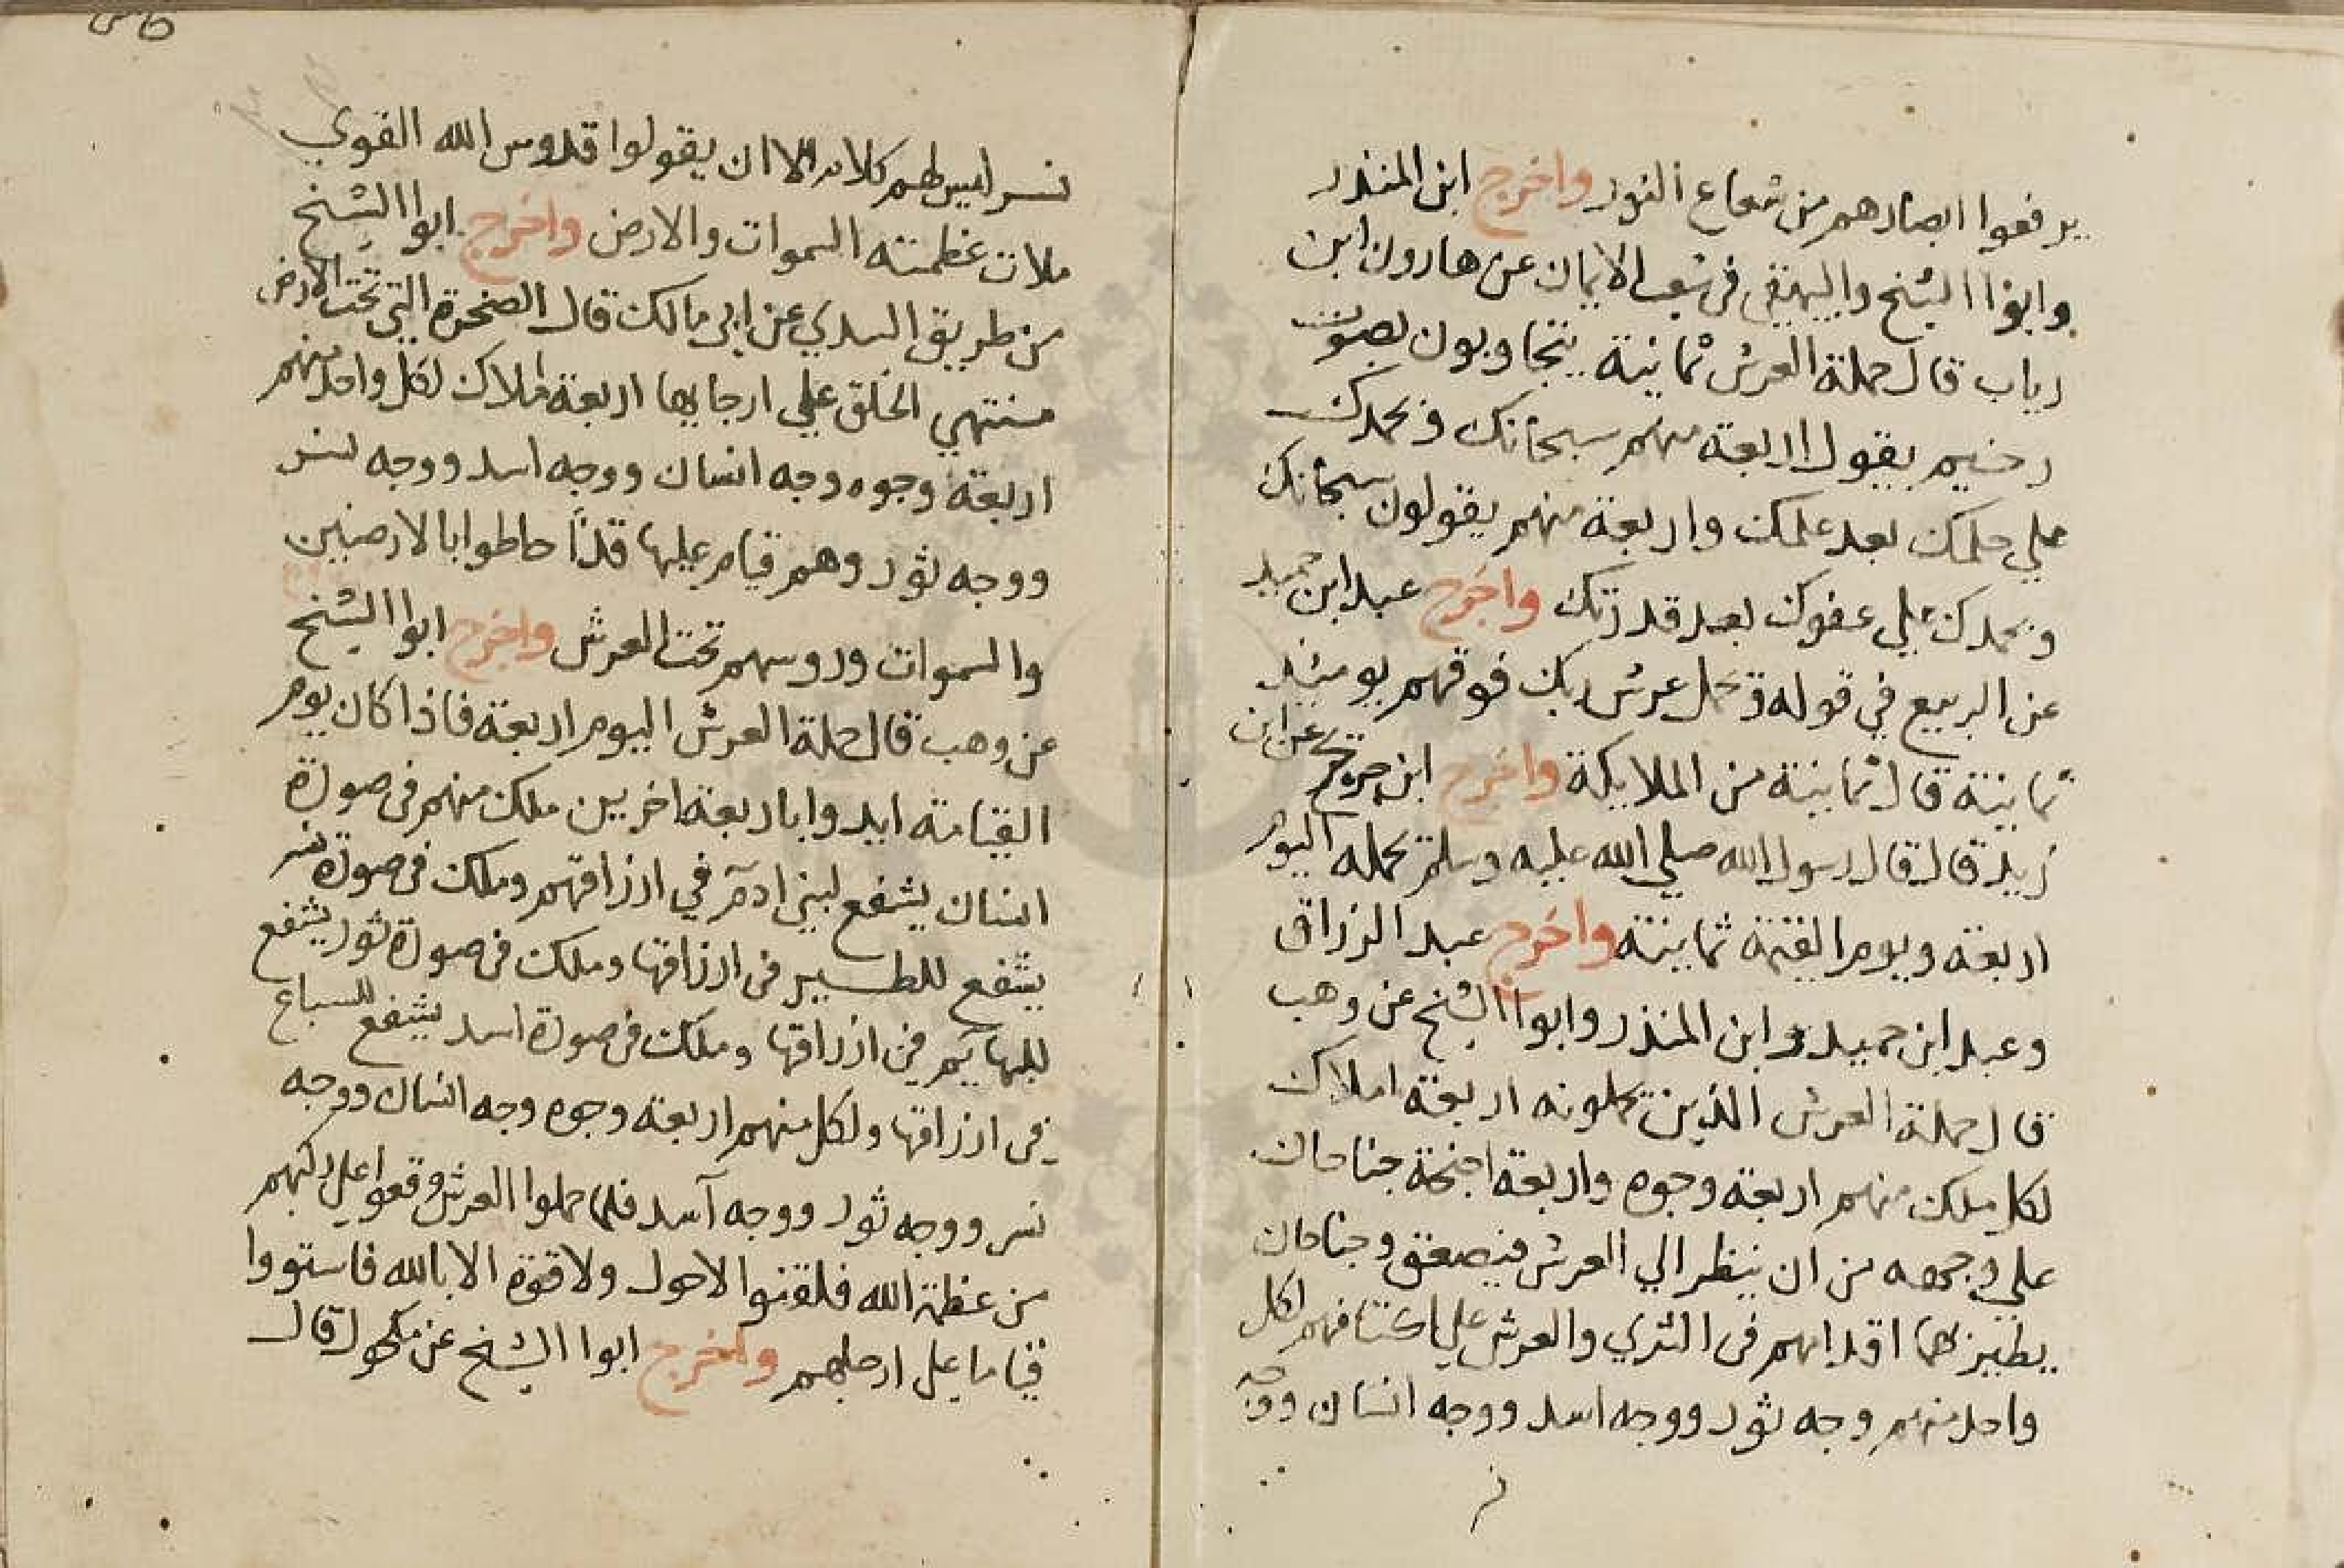 يرفعوا ابصارهم من شعاع النور واخرج ابن المنذر
وابوا الشيخ والبيهقي في شعب الايمان عن هارون ابن
رياب قال حملة العرش ثمانية يتجاوبون بصوت
رخيم يقول اربعة منهم سبحانك وبحمدك
علي حلمك بعد علمك واربعة منهم يقولون سبحانك
وبحمدك علي عفوك بعد قدرتك واخرج عبد ابن حميد
عن الربيع في قوله ويحمل عرش ربك فوقهم يوميذ
ثمانية قال ثمانية من الملايكة واخرج ابن جرير عن ابن
زيد قال قال رسول الله صلي الله عليه وسلم يحمله اليوم
اربعة ويوم القيمة ثمانية واخرج عبد الرزاق
وعبد ابن حميد وابن المنذر وابوا الشيخ عن وهب
قال حملة العرش الذين يحملونه اربعة املاك
لكل ملك منهم اربعة وجوه واربعة اجنحة جناحان
علي وجهه من ان ينظر الي العرش فيصعق وجناحان
يطير بهما اقدامهم في الثري والعرش علي اكتافهم لكل
واحد منهم وجه ثور ووجه اسد ووجه انسان ووجه
نسر ليس لهم كلام الا ان يقولوا قدوس الله القوي
ملات عظمته السموات والارض واخرج ابوا الشيخ
من طريق السدي عن ابي مالك قال الصخرة التي تحت الارض
منتهي الخلق علي ارجايها اربعة املاك لكل واحد منهم
اربعة وجوه وجه انسان ووجه اسد ووجه نسر
ووجه ثور وهم قيام عليها قد احاطوا بالارضين
والسموات وروسهم تحت العرش واخرج ابوا الشيخ
عن وهب قال حملة العرش اليوم اربعة فاذا كان يوم
القيامة ايدوا باربعة اخريين ملك منهم في صورة
انسان يشفع لبني ادم في ارزاقهم وملك في صورة نسر
يشفع للطير في ارزاقها وملك في صورة ثور يشفع
للبهايم في ارزاقها وملك في صورة اسد يشفع للسباع
في ارزاقها ولكل منهم اربعة وجوه وجه انسان ووجه
نسر ووجه ثور ووجه اسد فلما حملوا العرش وقعوا علي ركبهم
من عظمة الله فلقنوا لاحول ولا قوة الا بالله فاستووا
قياما علي ارجلهم واخرج ابوا الشيخ عن مكحول قال